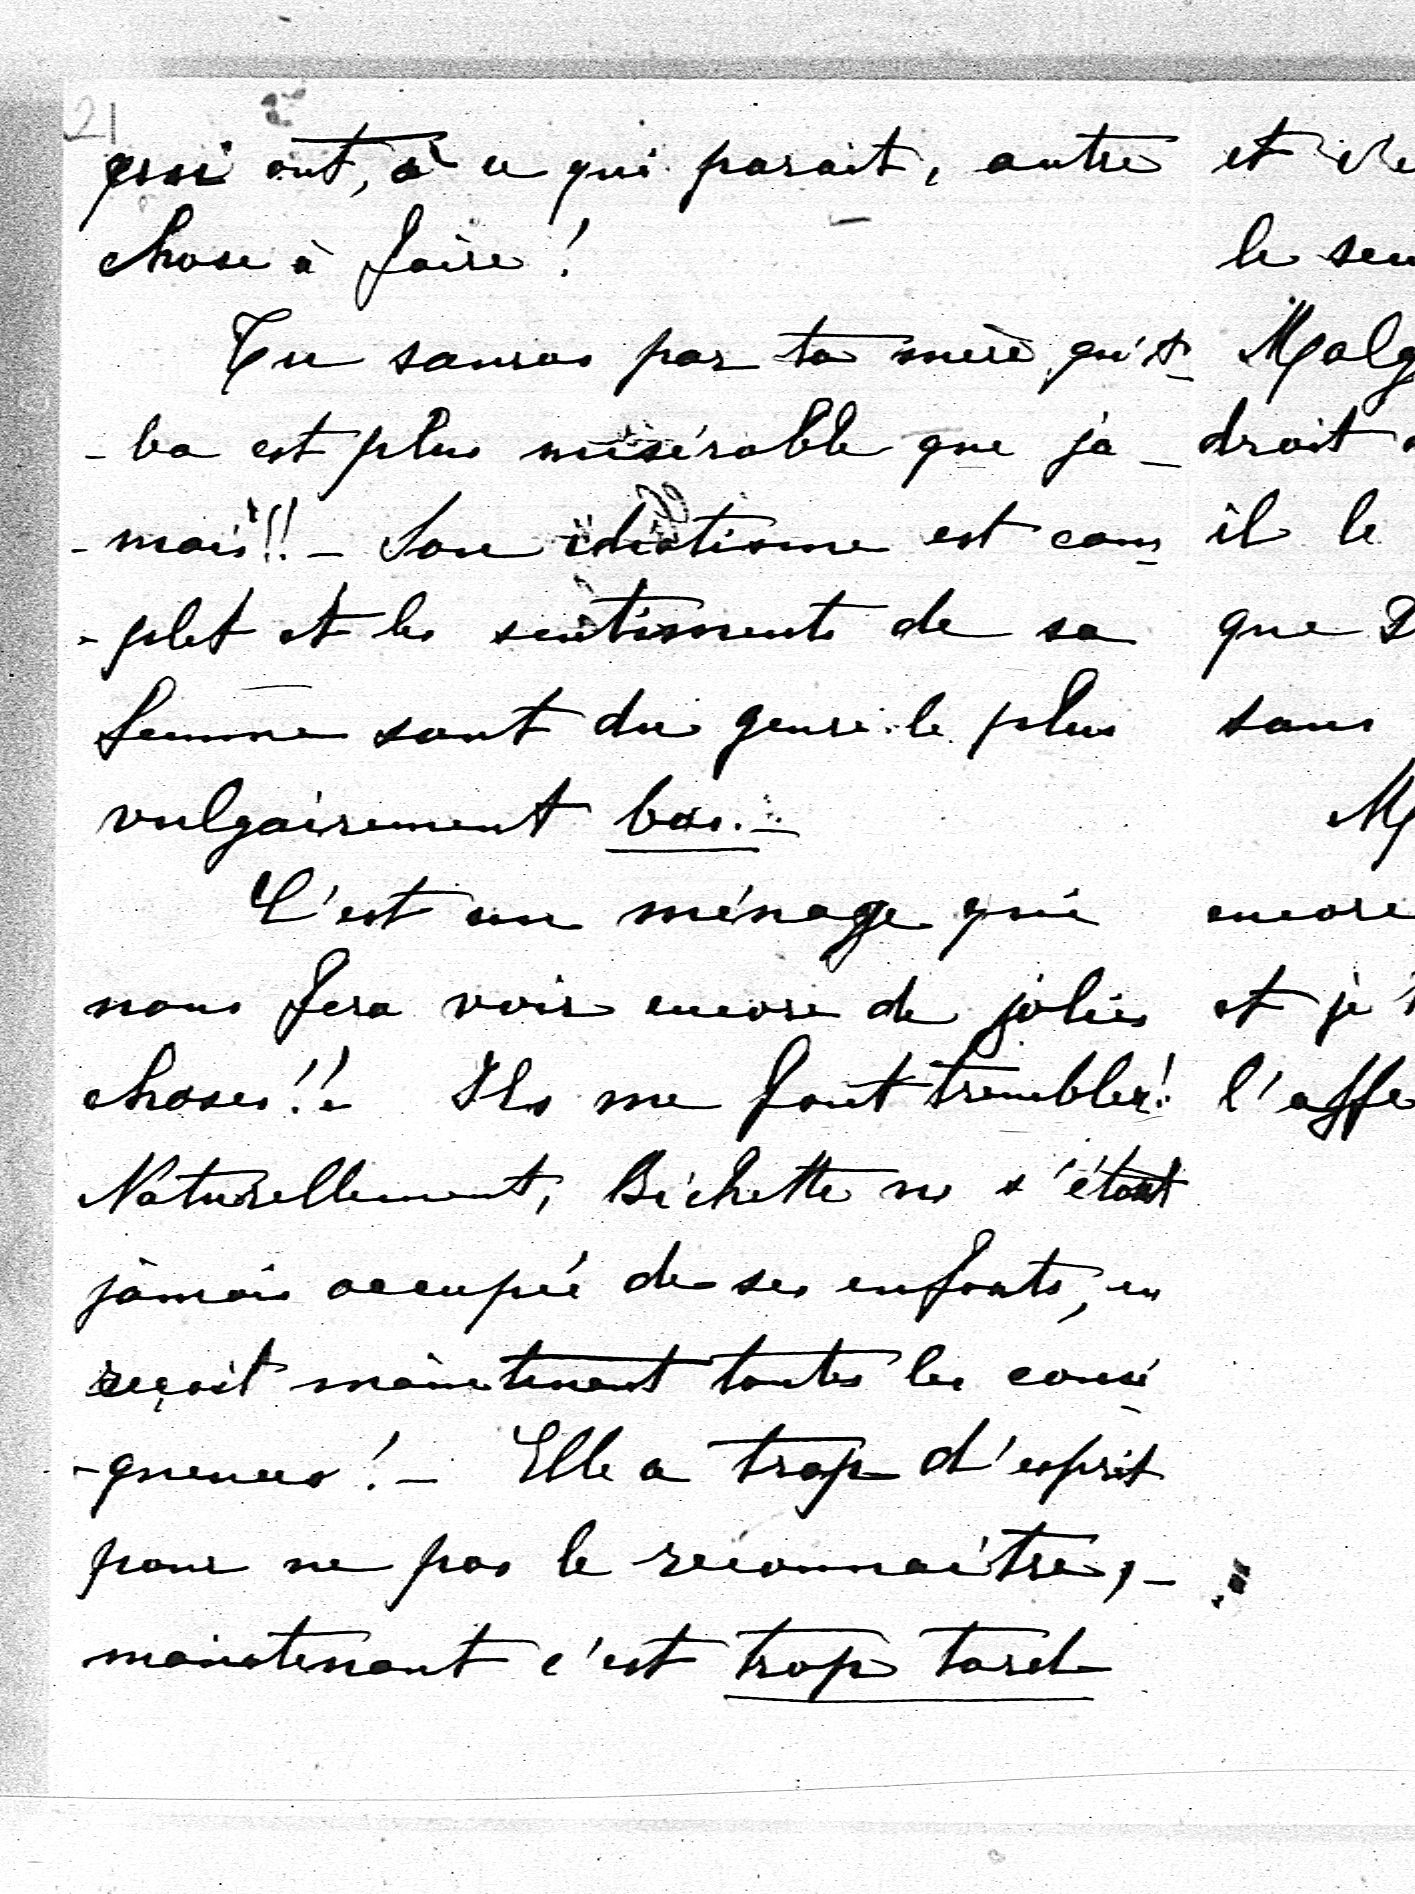 21
qui ont, à ce qui parait, autre
chose à faire!
Tu sauras par ta mère qu'A-
-ba est plus misérable que ja-
-mais!!! - Son idiotisme est com-
-plet et les sentiments de sa
femme sont du genre le plus
vulgairement bas. -
C'est un ménage qui
nous fera voir encore de jolies
choses!! Ils me font trembler!
Naturellement, Bichette ne s'étant
jamais occupée de ses enfants, en
reçoit maintenant toutes les consé-
-quences! - Elle a trop d'esprit
pour ne pas le reconnaitre, -
maintenant c'est trop tard
et
le
droit
il le
que
sans
encore
et je